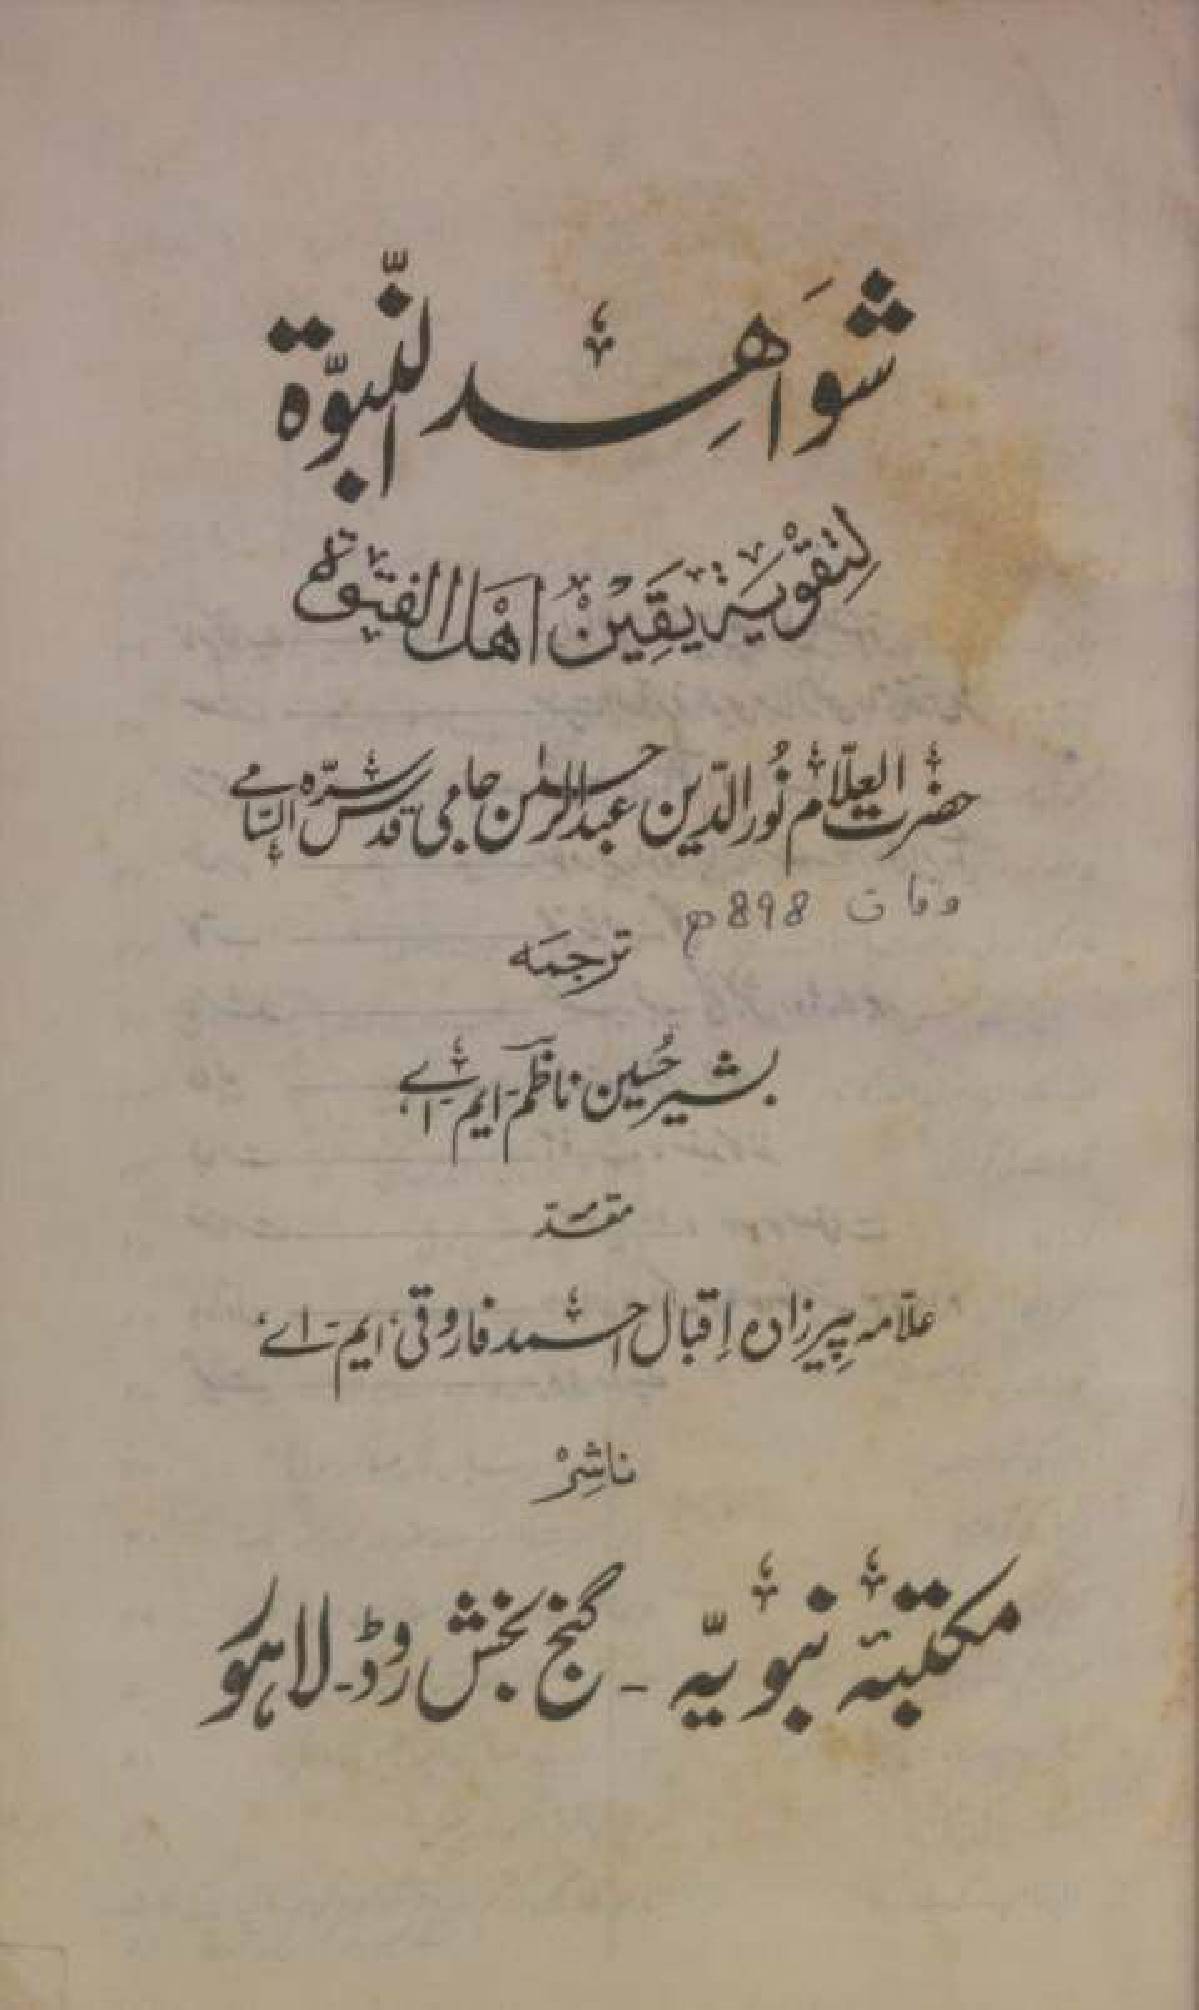 شَوَاهِد النّبوّة
لِتقْوِيَة يَقِيْنُ اَهْل الفتوة
حضرت العلّام نُور الدّین عبد الرحمٰن جامی قدس سرّہ السّامی
وفات 898ھ
ترجمَہ
بشیر حُسین ناظم ۔ ایم ۔ اے
مقدّمہ
علّامہ پیرزادہ اِقبال احمد فاروقی، ایم ۔ اے
ناشِرْ
مکتبۂ نبویّہ ۔ گنج بخش روڈ ۔ لاہور